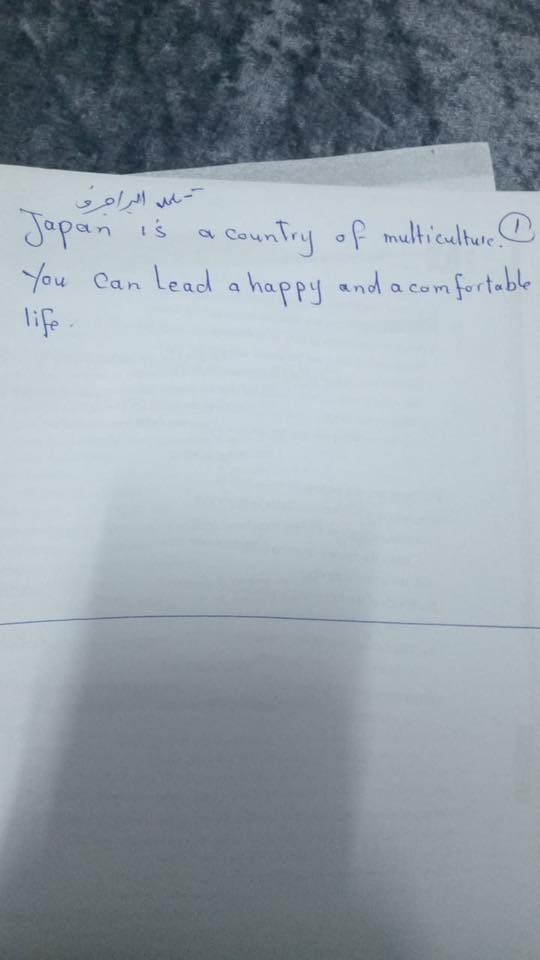 تكملة البراجرف
Japan is a country of multiculture. 1
You can lead a happy and a comfortable
life.